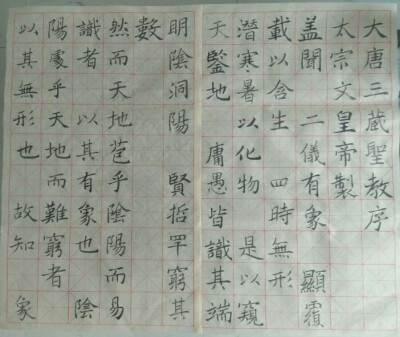 大唐三藏聖教序
太宗文皇帝製
盖聞二儀有象顯覆
載以含生四時無形
潛寒暑以化物是以窺
天鑒地庸愚皆識其端
明陰洞陽賢哲罕窮其
數
然而天地苞乎陰陽而易
識者以其有象也陰
陽處乎天地而難窮者
以其無形也故知象